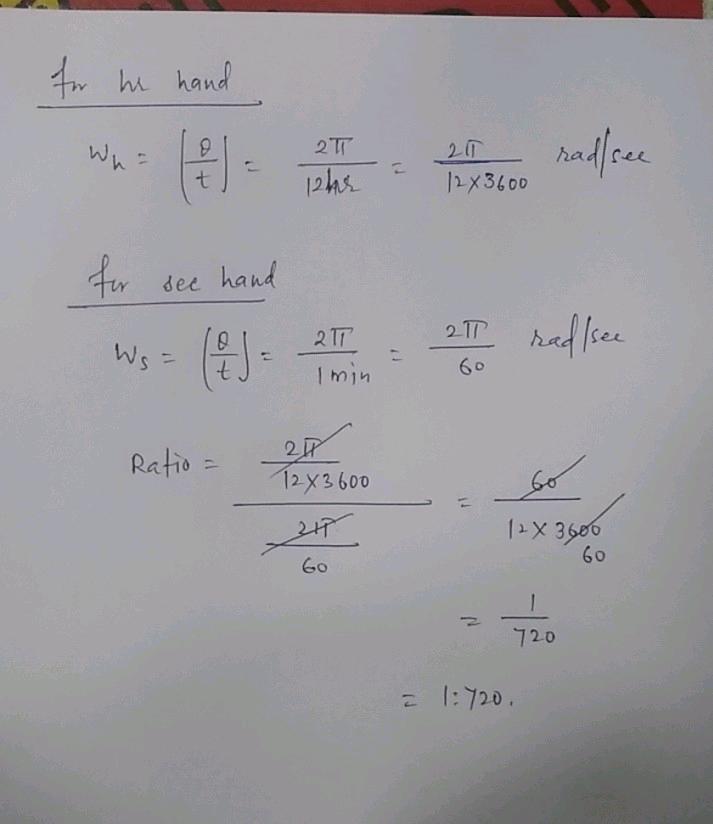 for hr hand
Wh = (θ/t) = 2π/12hr = 2π/12×3600 rad/sec
for sec hand
Ws = (θ/t) = 2π/1min = 2π/60 rad/sec
Ratio = (2π/12×3600)/(2π/60) = 60/12×3600 60
= 1/720
= 1:720.